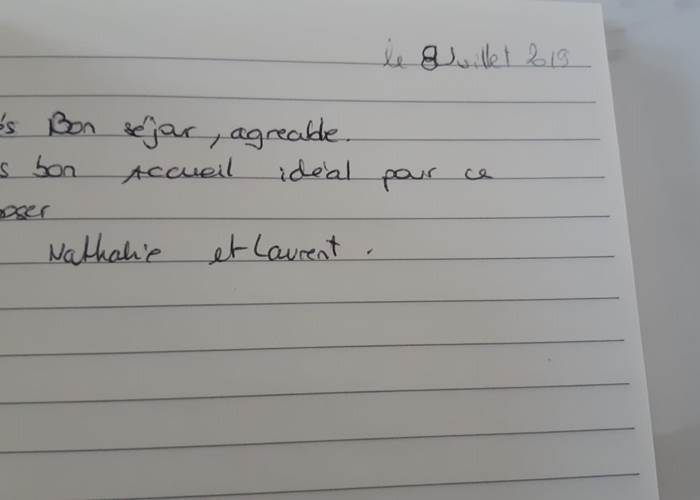 le 8 Juillet 2019
és Bon séjar, agreable.
s bon Accueil idéal pour ce
oser
Nathalie et Laurent.